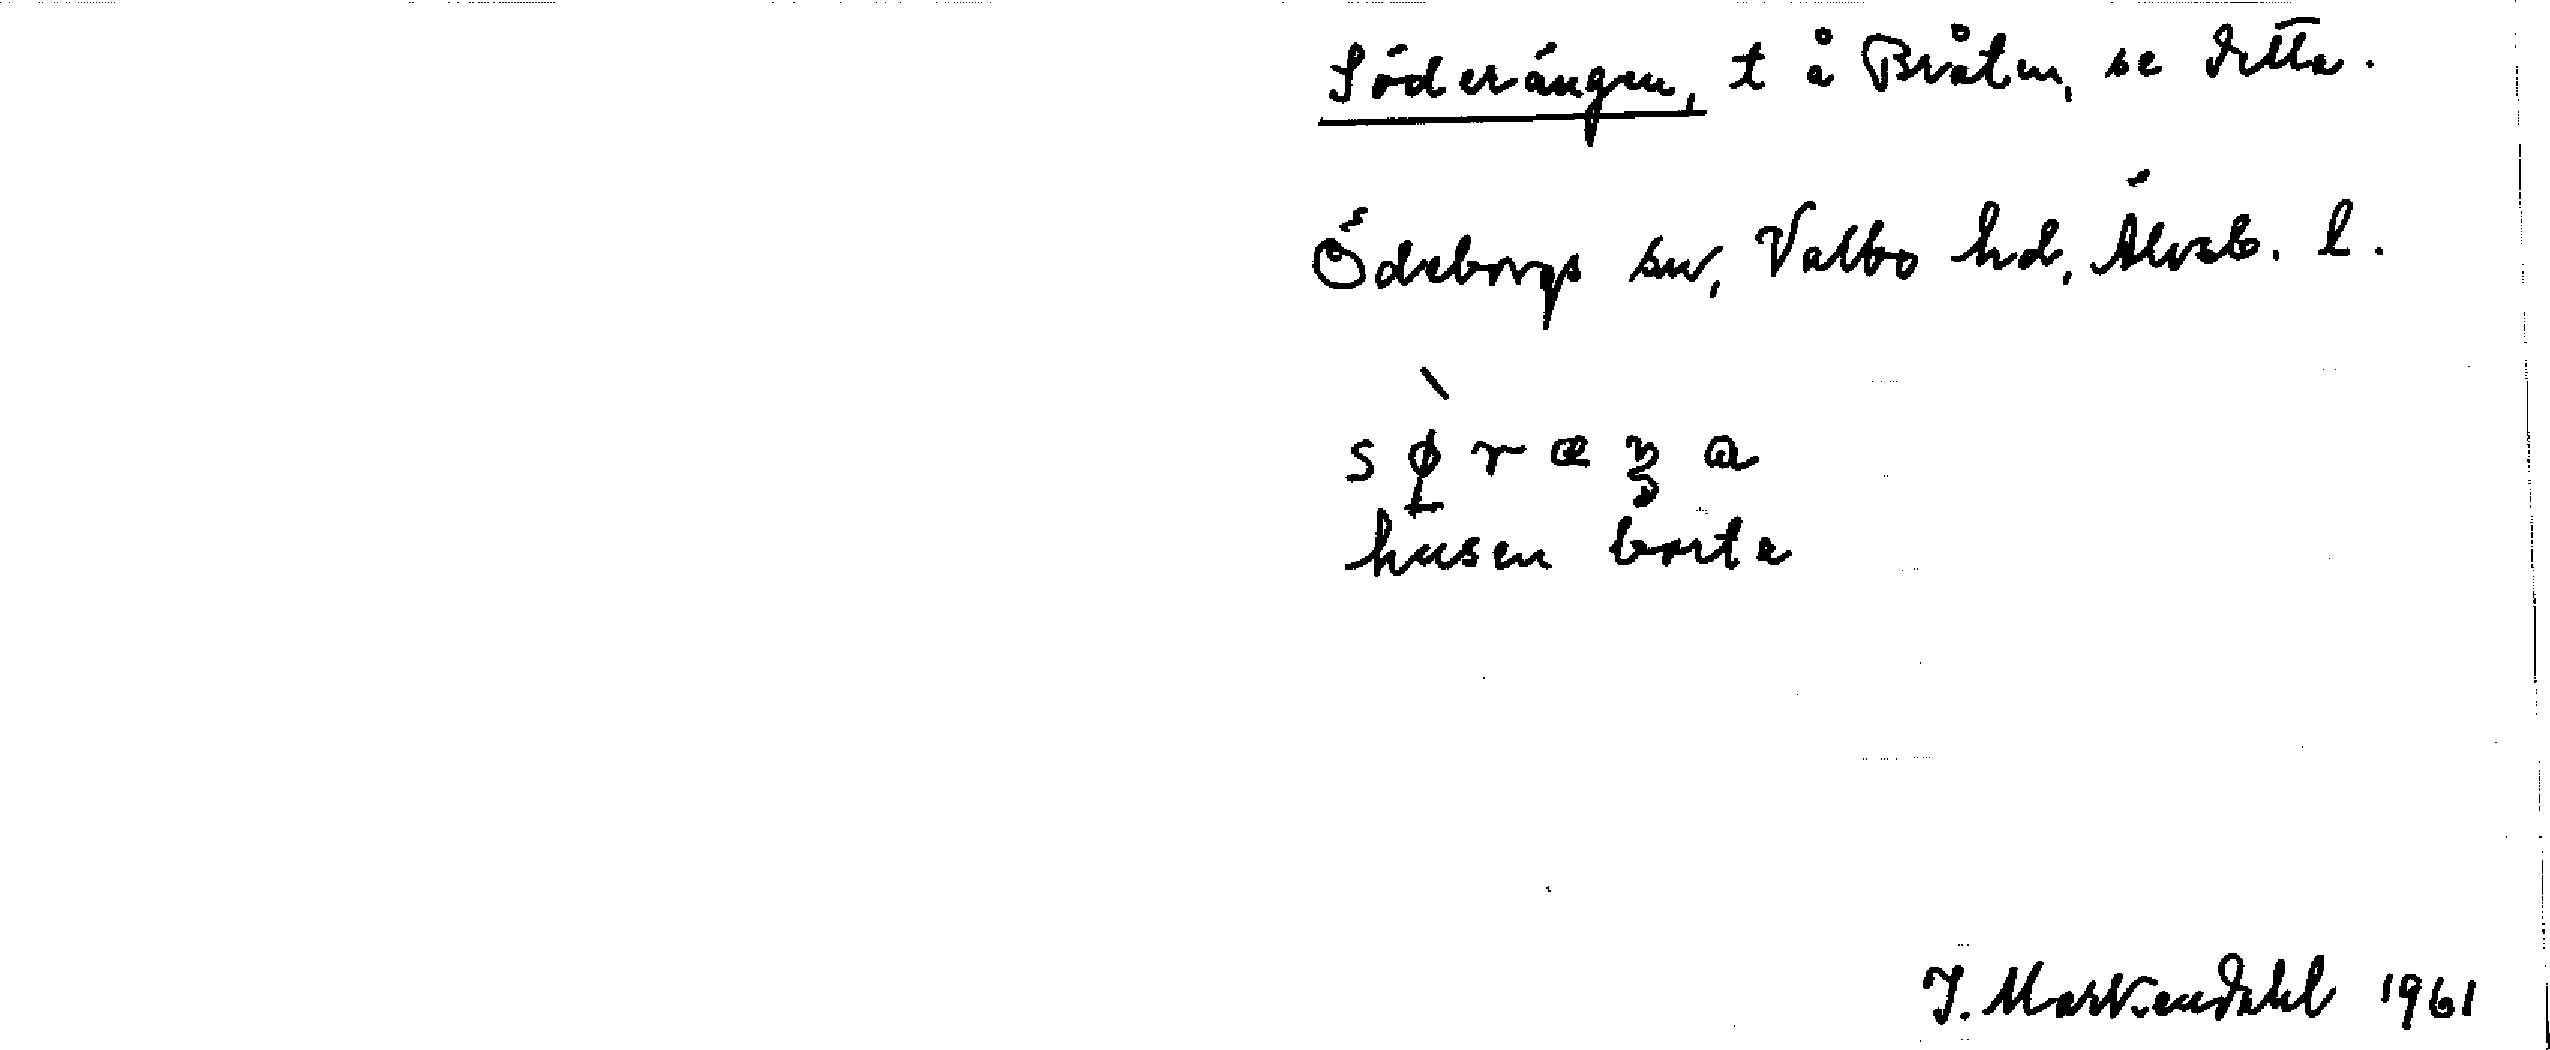 Söderängen, t å Bråten, se detta.
Ödeborgs sn, Valbo hd, Älvsb. l.
husen borta
J. Markendahl 1961